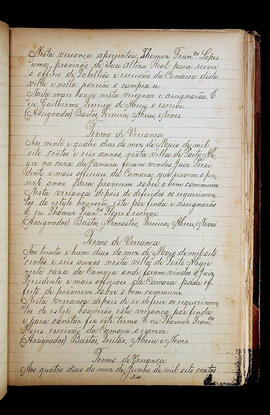 Nesta vereança apresentou Thomaz Franco Lopes
uma provizão de Sua Alteza Real para servir
o officio de Tabellião e escrivão da Camara desta
villa e nella poz-se o cumpra-se.
Nada mais houve nesta vereança e assignarão. E
eu Guilherme Ferreira de Abreu o escrevi.
Assignados: Bastos, Ferreira, Abreu, Neves
Termo de Vereança
Aos vinte e quatro dias do mez de Maio de mil
oito centos e seis annos, nesta villa de Porto Ale-
gre na caza da Camara foram vindos Juiz Presi-
dente e mais officiaes da Camara que servem o pre-
sente anno para proverem sobre o bem commum
Nesta vereança depois de deferidos os requerimen-
tos do estylo houverão esta por finda e assignarão
E eu Thomaz Fran.co Lopes o escrevi
Assignados: Bastos, Ferreira, Abreu, Neves
Termo de Vereança
Aos trinta e hum dias do mez de Maio de mil oito
centos e seis annos nesta villa de Porto Alegre
nesta caza da Camara onde foram vindos o Juiz
Presidente e mais officiaes da Camara para ef-
feito de proverem sobre o bem commum
Nesta vereança depois de deferir os requerimen-
tos do estylo houverão esta vereança por finda
e para constar fiz este termo E eu Thomaz Fran.co
Lopes escrivão da Camara o escrevi.
Assignados: Bastos, Freitas, Abreu e Neves.
Termo de Vereança
Aos quatro dias do mez de Junho de mil oito centos